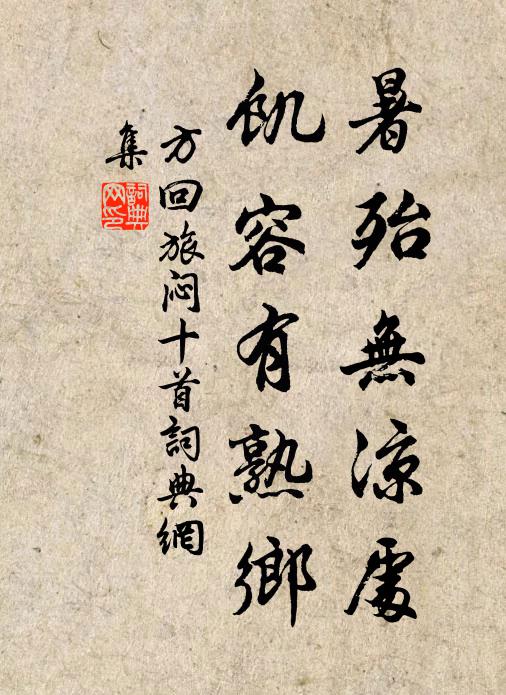 暑殆無涼處
飢容有熟鄉
方回旅悶十首詞典網
集
詞典
网印